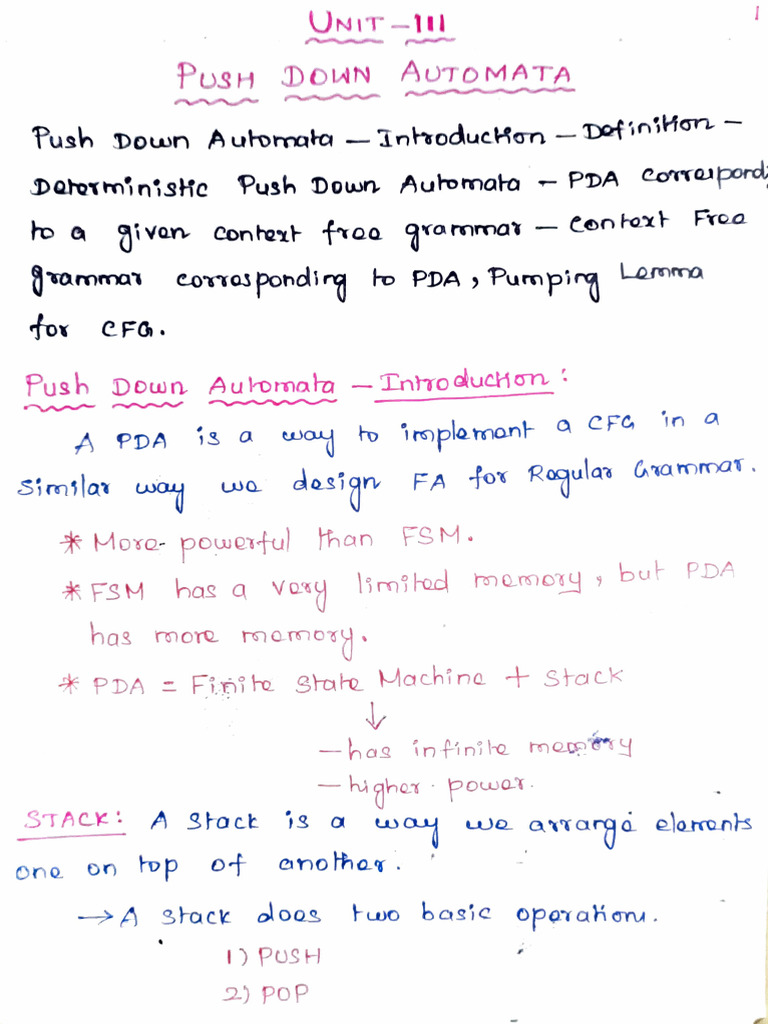 1
UNIT - III
PUSH DOWN AUTOMATA
Push Down Automata - Introduction - Definition -
Deterministic Push Down Automata - PDA correspond
to a given context free grammar - Context Free
grammar corresponding to PDA, Pumping Lemma
for CFG.
Push Down Automata - Introduction:
A PDA is a way to implement a CFG in a
Similar way we design FA for Regular Grammar.
* More powerful than FSM.
* FSM has a very limited memory, but PDA
has more memory.
* PDA = Finite State Machine + Stack
↓
- has infinite memory
- higher power.
STACK: A Stack is a way we arrange elements
one on top of another.
→ A stack does two basic operations.
1) PUSH
2) POP